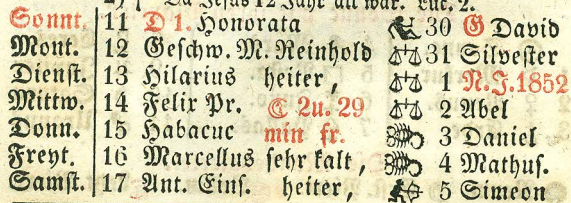 Da Jesus 12 Jahr alt war. Luc. 2.
Sonnt. 11 D 1. Honorata 30 G David
Mont. 12 Geschw. M. Reinhold 31 Silvester
Dienst. 13 Hilarius heiter, 1 N. J. 1852
Mittw. 14 Felix Pr. ☾ 2 u. 29 2 Abel
Donn. 15 Habacuc min fr. 3 Daniel
Freyt. 16 Marcellus sehr kalt, 4 Mathus.
Samst. 17 Ant. Eins. heiter, 5 Simeon